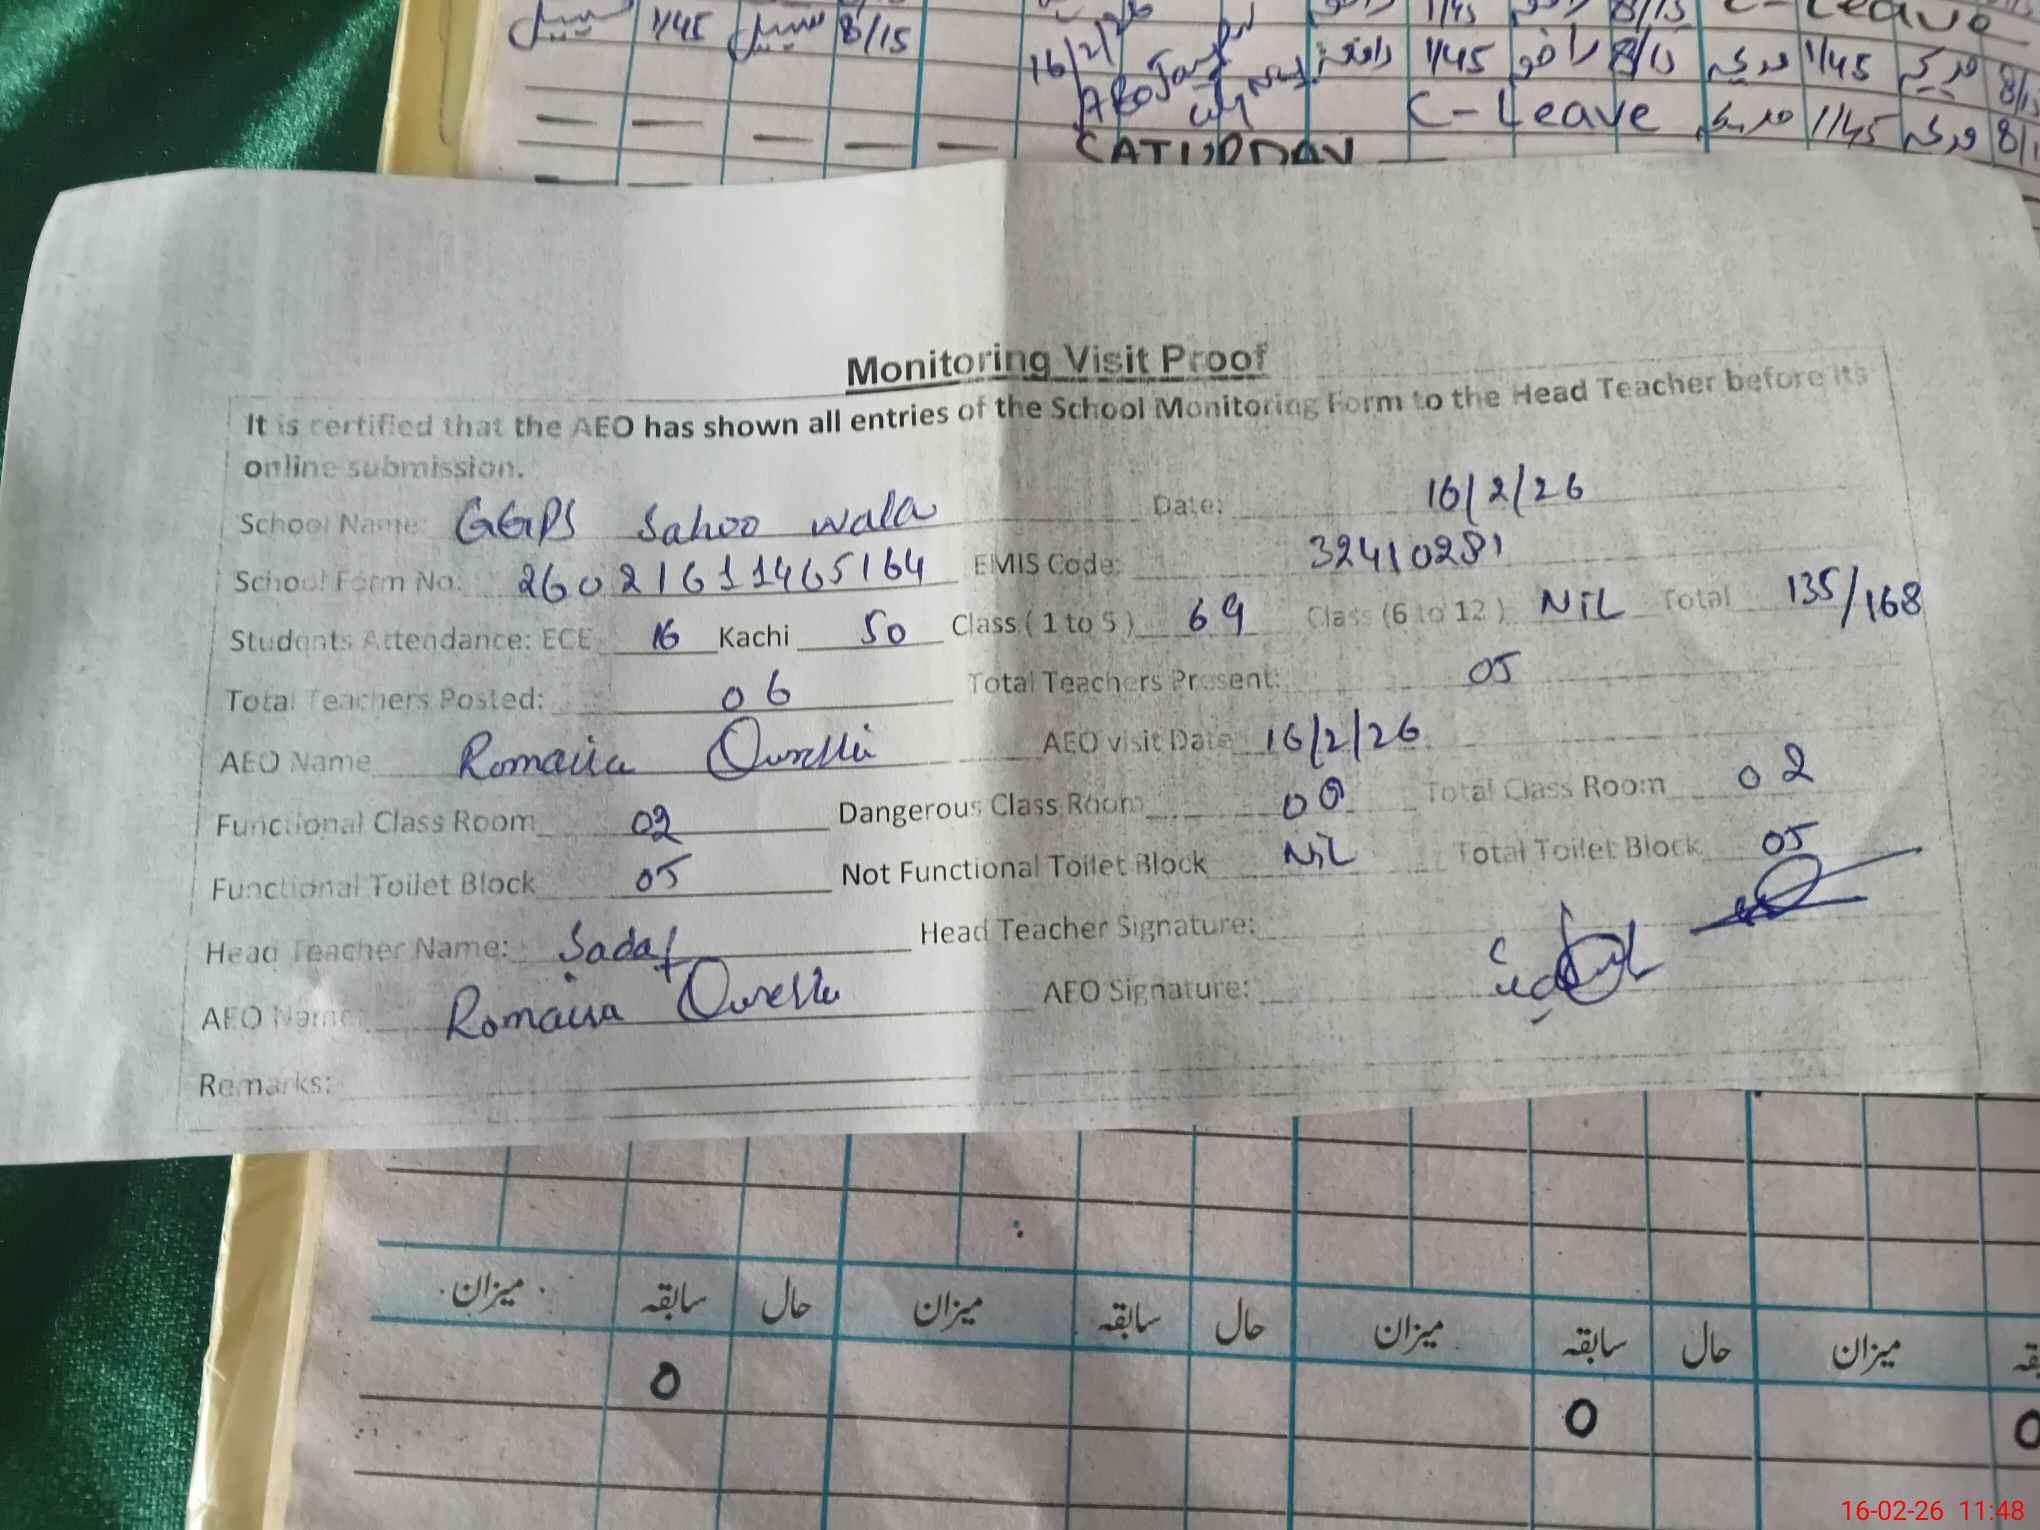 سبیل 1/45 سبیل 8/15
16/2/26
1/45 8/15 1/45
C-Leave 1/45
SATURDAY
Monitoring Visit Proof
It is certified that the AEO has shown all entries of the School Monitoring Form to the Head Teacher before its
online submission.
School Name: GGPS Sahoo wala Date: 16/2/26
School Form No: 26021611465164 EMIS Code: 32410281
Students Attendance: ECE 16 Kachi 50 Class ( 1 to 5 ) 69 Class (6 to 12 ) NiL Total 135/168
Total Teachers Posted: 06 Total Teachers Present: 05
AEO Name Romaisa AEO visit Date 16/2/26
Functional Class Room 02 Dangerous Class Room 00 Total Class Room 02
Functional Toilet Block 05 Not Functional Toilet Block NiL Total Toilet Block 05
Head Teacher Name: Sadaf Head Teacher Signature:
AEO Name Romaisa AEO Signature:
Remarks:
میزان سابقہ حال میزان سابقہ حال میزان سابقہ حال میزان
0 0 0
16-02-26 11:48